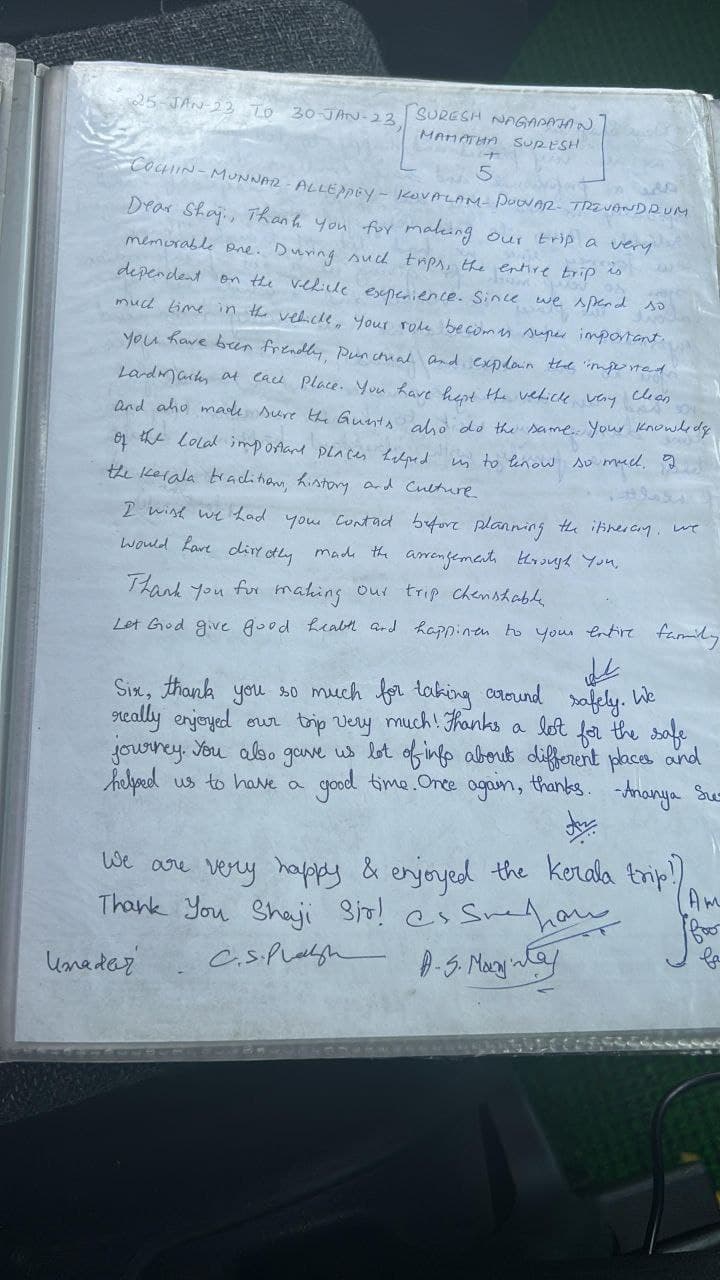 25-JAN-23 TO 30-JAN-23, [SURESH NAGARAJAN
MAMATHA SURESH
+
5]
COCHIN-MUNNAR-ALLEPPEY-KOVALAM-POOVAR-TRIVANDRUM
Dear Shaji, Thank you for making our trip a very
memorable one. During such trips, the entire trip is
dependent on the vehicle experience. Since we spend so
much time in the vehicle, your role becomes super important.
You have been friendly, punctual and explain the important
Landmarks at each place. You have kept the vehicle very clean
and also made sure the Guests also do the same. Your knowledge
of the local important places helped us to know so much of
the Kerala tradition, history and culture
I wish we had your contact before planning the itinerary. We
would have directly made the arrangements through you.
Thank you for making our trip cherishable
Let God give good health and happiness to your entire family
Sir, thank you so much for taking around safely. We
really enjoyed our trip very much! Thanks a lot for the safe
journey. You also gave us lot of info about different places and
helped us to have a good time. Once again, thanks. -Ananya
We are very happy & enjoyed the Kerala trip!!
Thank You Shaji Sir!